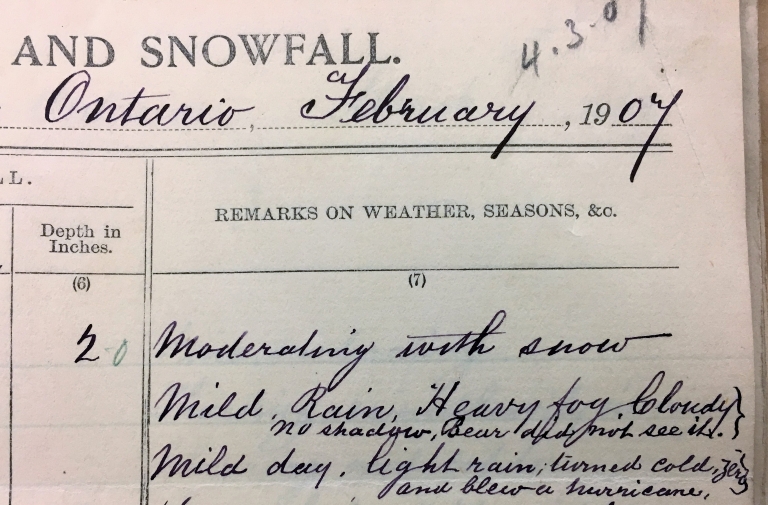 4.3.07
AND SNOWFALL.
Ontario, February, 1907
LL.
Depth in
Inches.
REMARKS ON WEATHER, SEASONS, &c.
(6)
(7)
2 0 Moderating with snow
Mild, Rain, Heavy fog, Cloudy
no shadow, Bear did not see it.
Mild day, light rain, turned cold, zero
and blew a hurricane,